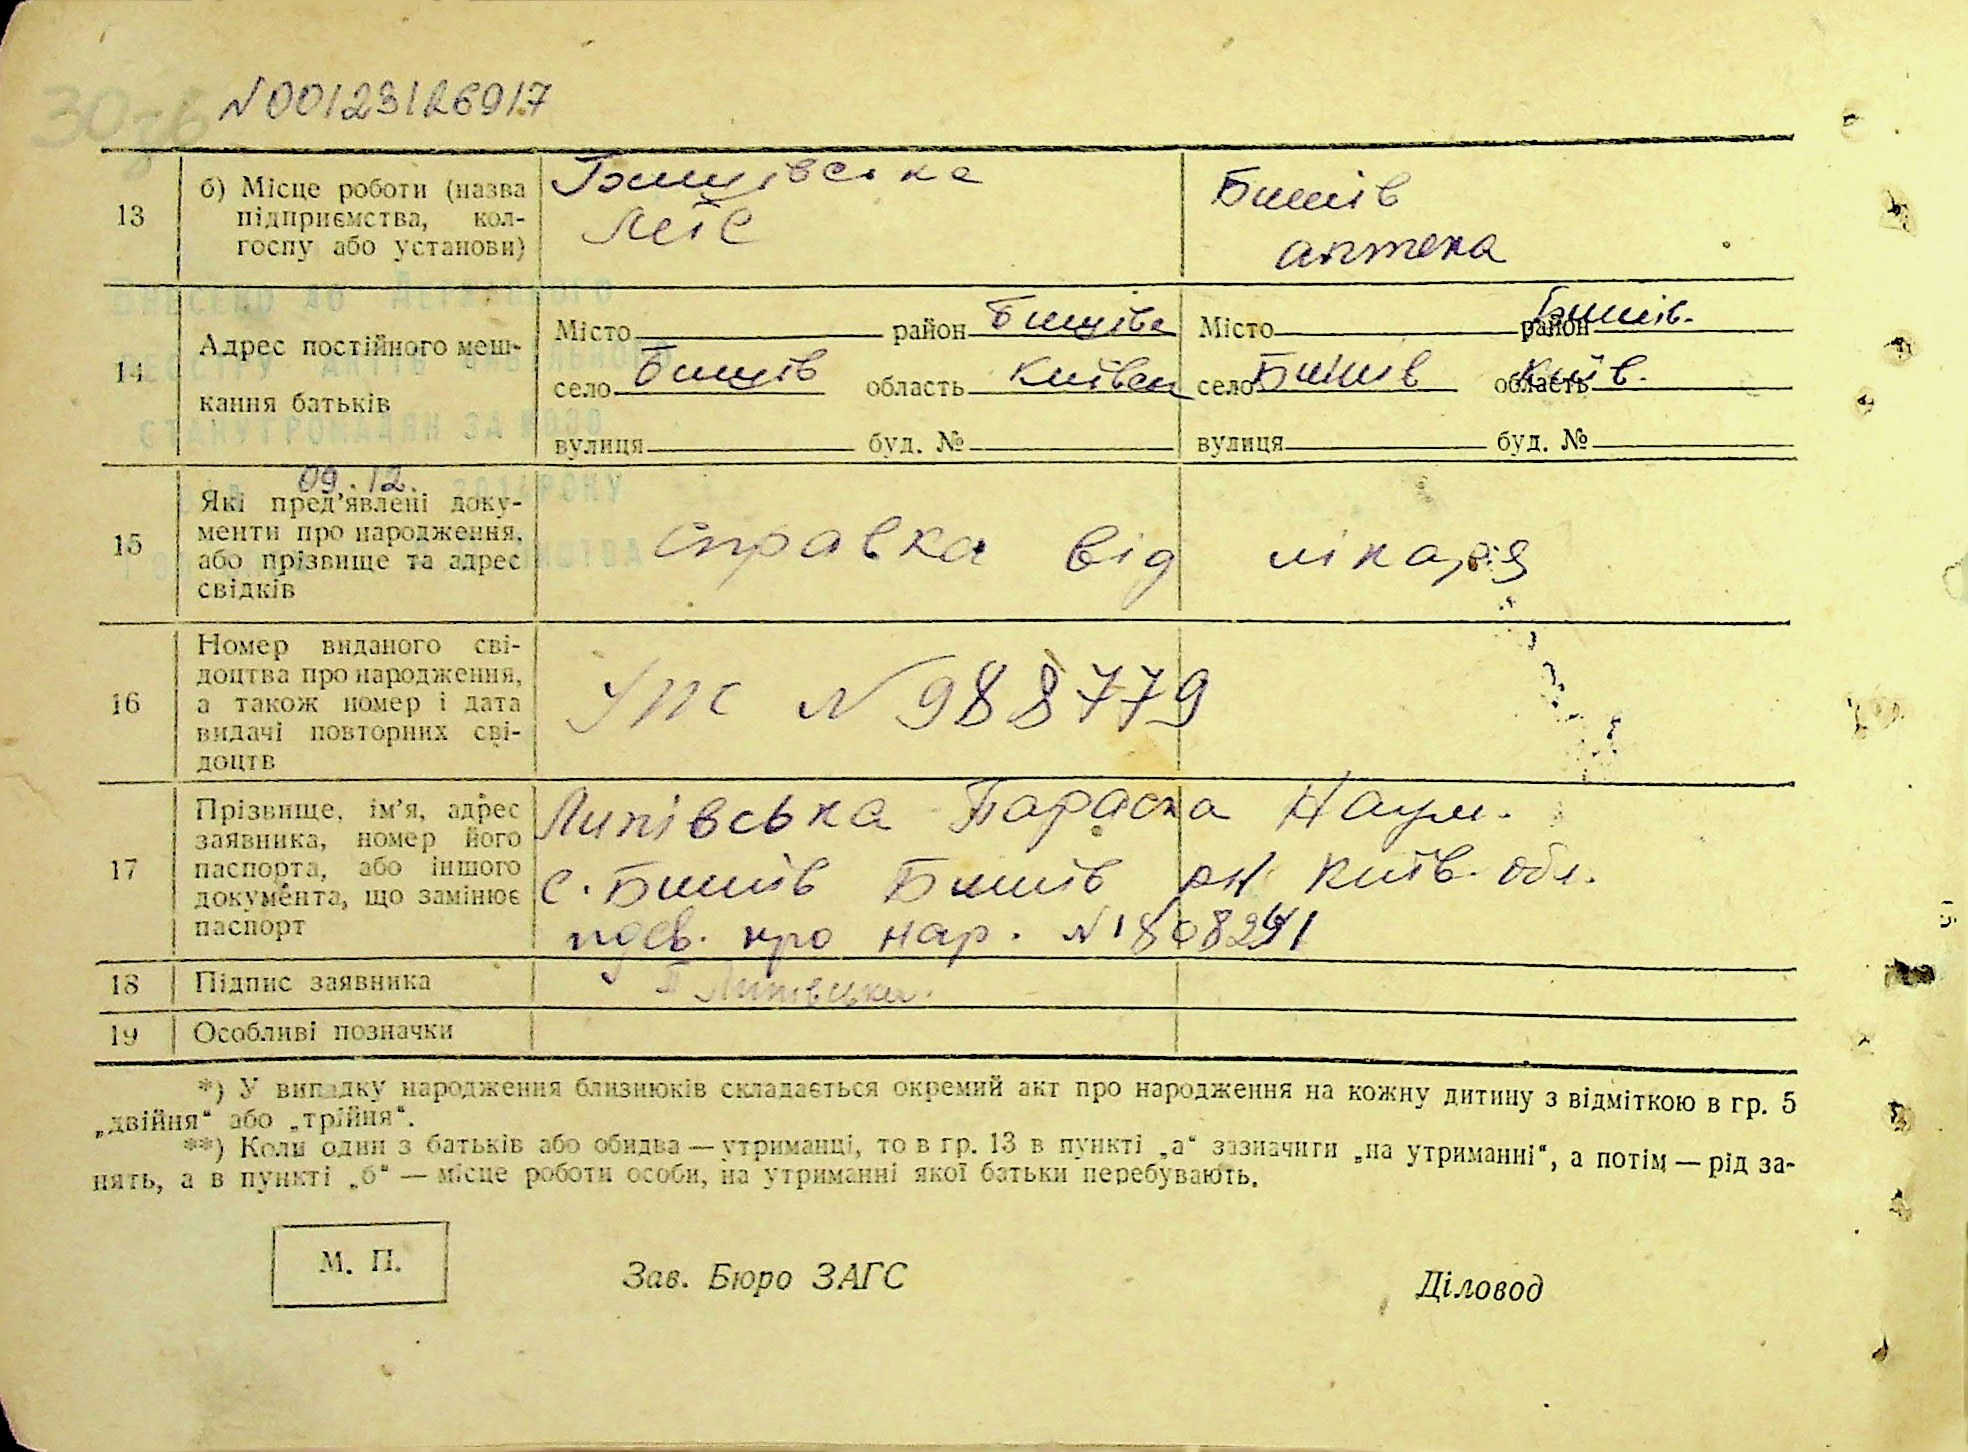 30зб N00123126917
13 б) Місце роботи (назва підприємства, колгоспу або установи)
Бишівська
МТС
Бишів
аптека
ВНЕСЕНО ДО ДЕРЖАВНОГО
РЕЄСТРУ АКТІВ ЦИВІЛЬНОГО
СТАНУ ГРОМАДЯН ЗА
09.12. РОКУ
14 Адрес постійного меш-
кання батьків
Місто район Бишівс
село Бишів область Київськ
вулиця буд. №
Місто район Бишів.
село Бишів область Київ.
вулиця буд. №
15 Які пред'явлені доку-
менти про народження,
або прізвище та адрес
свідків
справка від лікаря
16 Номер виданого сві-
доцтва про народження,
а також номер і дата
видачі повторних сві-
доцтв
УЖ N 988779
17 Прізвище, ім'я, адрес
заявника, номер його
паспорта, або іншого
документа, що замінює
паспорт
Липівська Параска Наум.
с. Бишів Бишів рн Київ. обл.
посв. про нар. N
18 Підпис заявника
П Липівська.
19 Особливі позначки
*) У випадку народження близнюків складається окремий акт про народження на кожну дитину з відміткою в гр. 5
„двійня“ або „трійня“.
**) Коли один з батьків або обидва — утриманці, то в гр. 13 в пункті „а“ зазначити „на утриманні“, а потім — рід за-
нять, а в пункті „б“ — місце роботи особи, на утриманні якої батьки перебувають.
М. П.
Зав. Бюро ЗАГС
Діловод